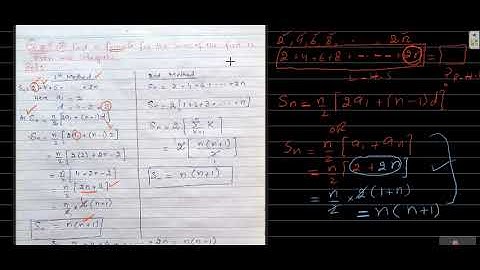 Find a formula for the sum of the first n
even
1st Method
Sn = 2+4+6+ ... +2n
Here a1 = 2
d = 4-2 = 2
As Sn = n/2 [2a1 + (n-1)d]
= n/2 [2(2) + (n-1)2]
= n/2 [4+2n-2]
= n/2 [2n+2]
= n/2 × 2(n+1)
Sn = n(n+1)
2nd Method
Sn = 2+4+6+ ... +2n
Sn = 2[1+2+3+ ... +n]
= 2[n(n+1)/2]
= n(n+1)
2, 4, 6, 8, ... 2n
2+4+6+8+ ... +2n =
L.H.S
Sn = n/2 [2a1 + (n-1)d]
OR
Sn = n/2 [a1 + an]
= n/2 [2+2n]
= n/2 × 2(1+n)
= n(n+1)